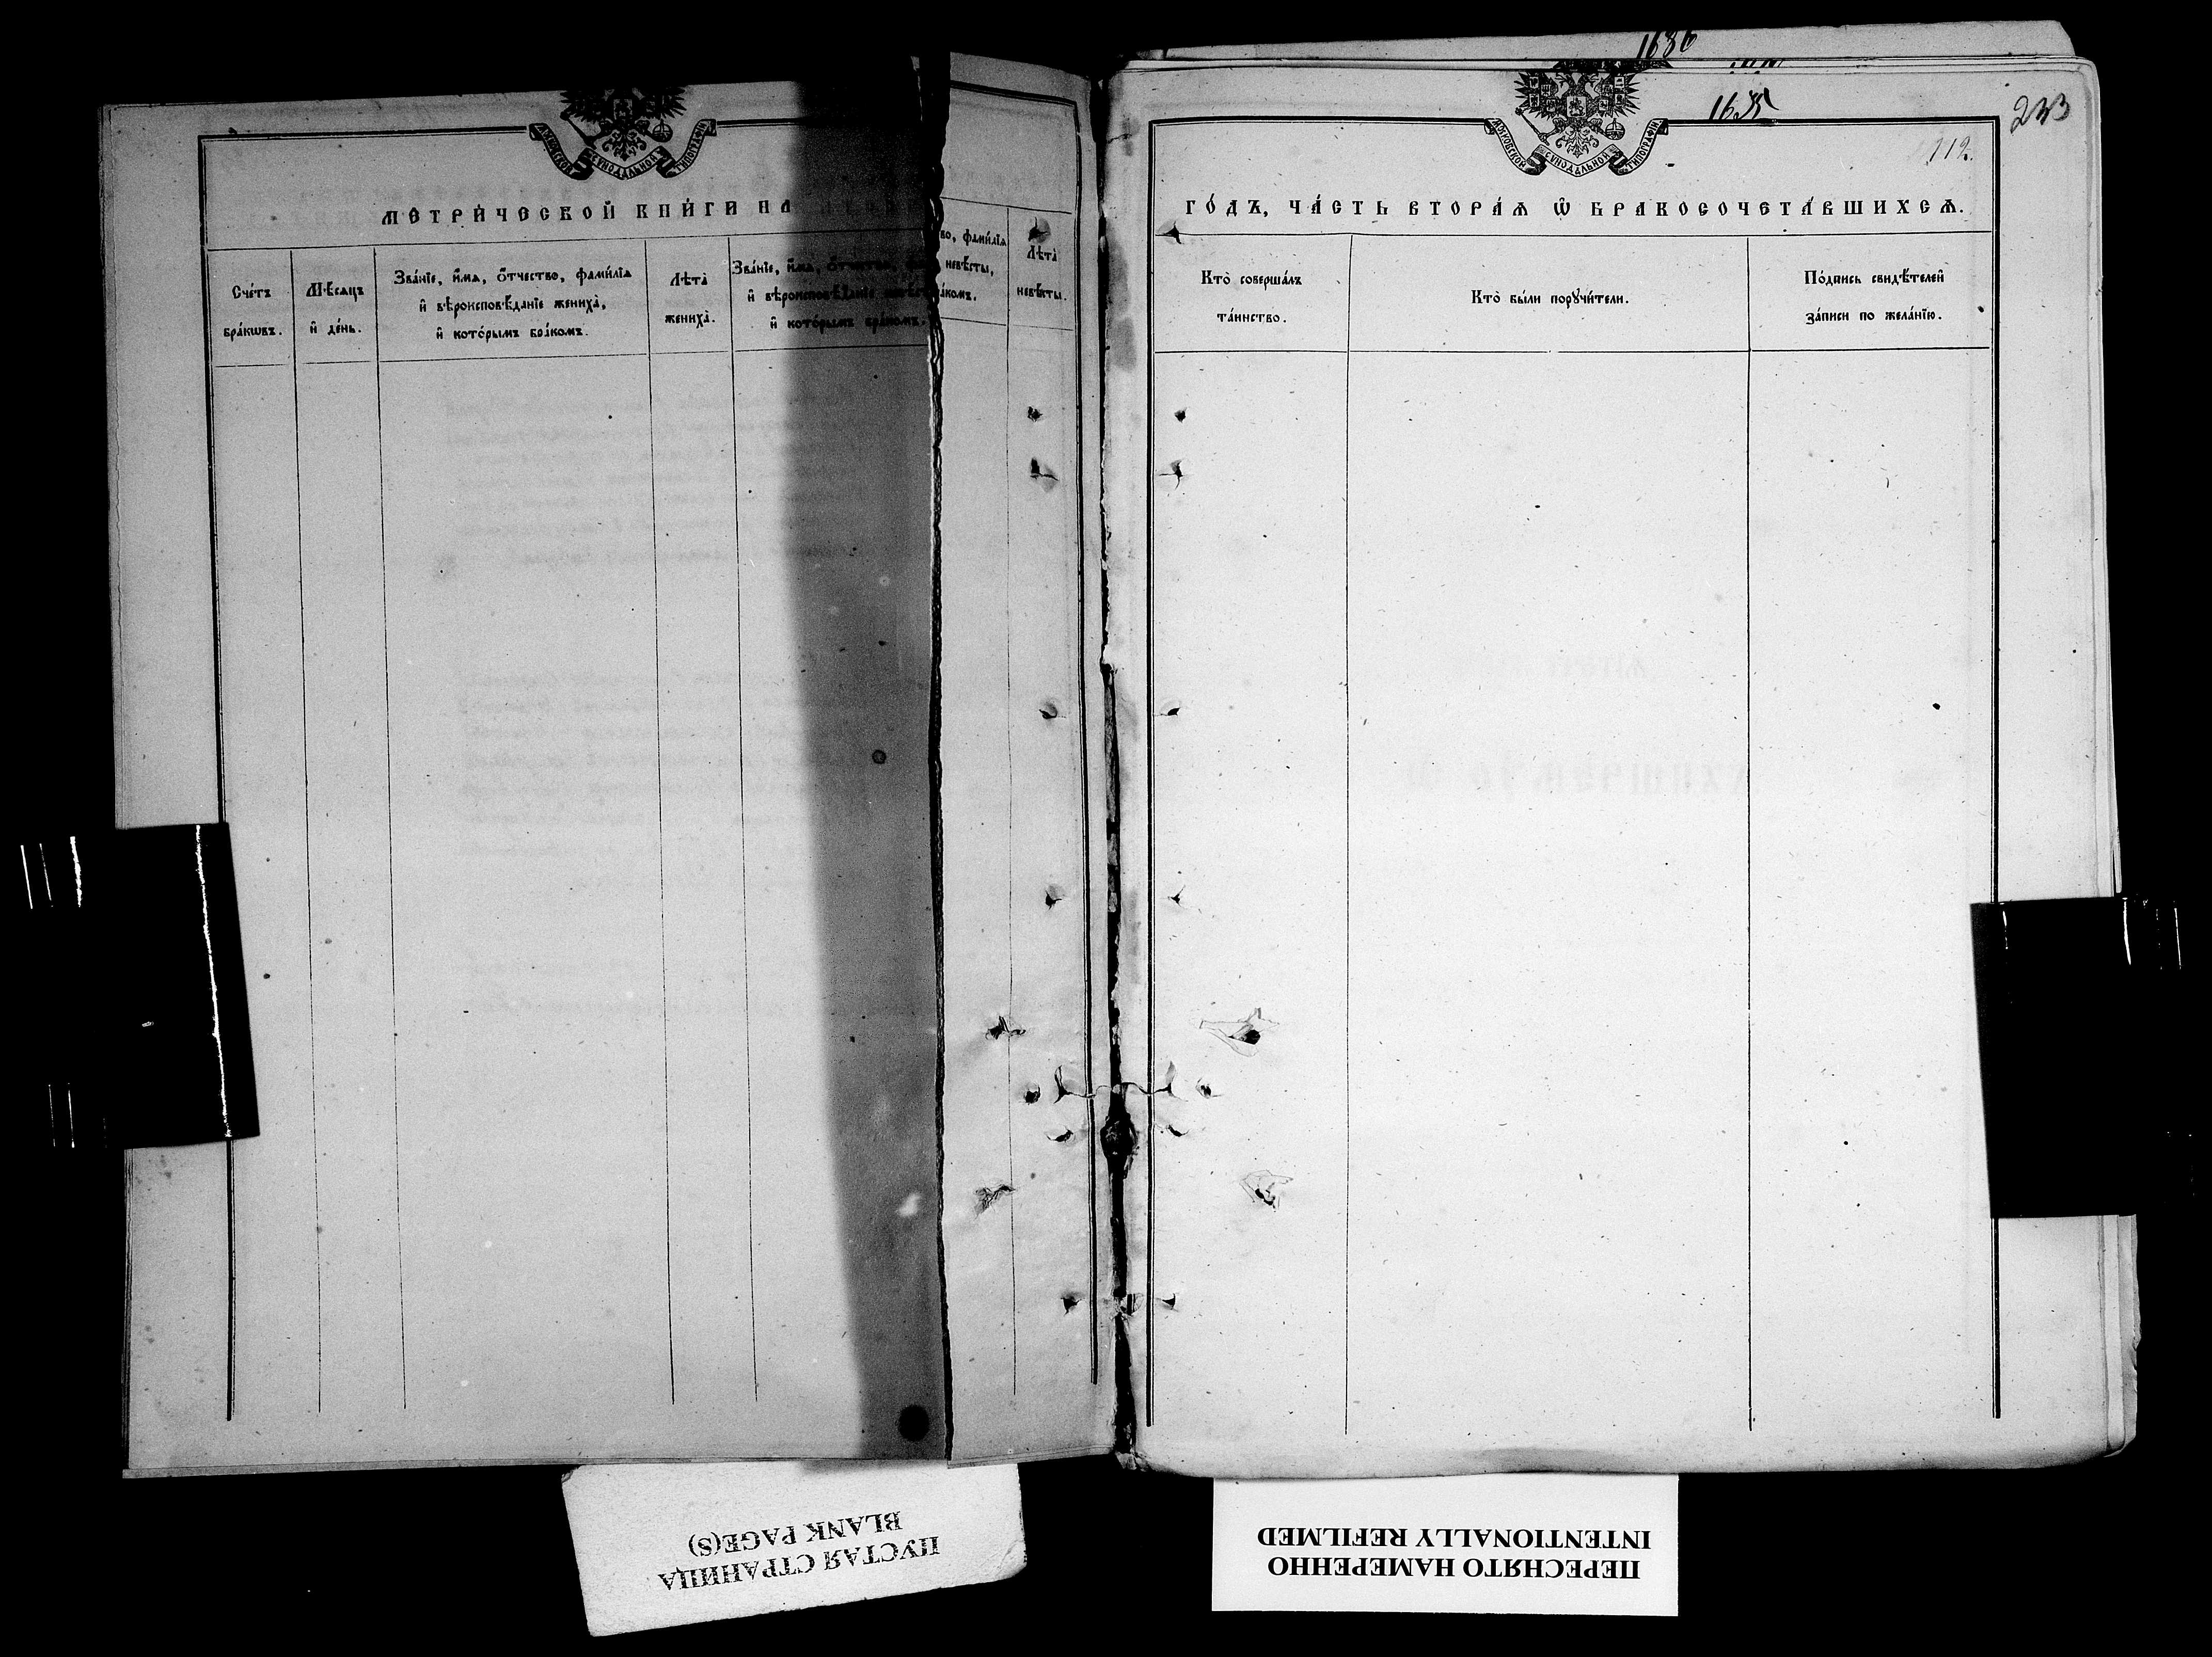 МОСКОВСКОЙ СѴНОДАЛЬНОЙ ТИПОГРАФІИ
МЕТРИ́ЧЕСКОЙ КНИ́ГИ НА
Сче́тъ
бра́кѡвъ.
Мѣ́сяцъ
и҆ де́нь.
Зва́нїе, и҆́мѧ, ѻ҆́тчество, фами́лїѧ
и҆ вѣроисповѣ́данїе жениха̀,
и҆ кото́рымъ бра́комъ.
Лѣ́та
жениха̀.
Зва́нїе, и҆́мѧ,
и҆ вѣроисповѣ́данїе
и҆ кото́рымъ бра́комъ.
во, фами́лїѧ
невѣ́сты,
а́комъ.
Лѣ́та
невѣ́сты.
1636
МОСКОВСКОЙ СѴНОДАЛЬНОЙ ТИПОГРАФІИ
112.
ГО́ДЪ, ЧА́СТЬ ВТОРА́Ѧ Ѽ БРАКОСОЧЕТА́ВШИХСѦ.
Кто̀ соверша́лъ
та́инство.
Кто̀ бы́ли порꙋчи́тели.
По́дпись свидѣ́телей
за́писи по жела́нїю.
ПУСТАЯ СТРАНИЦА
BLANK PAGE(S)
ПЕРЕСНЯТО НАМЕРЕННО
INTENTIONALLY REFILMED